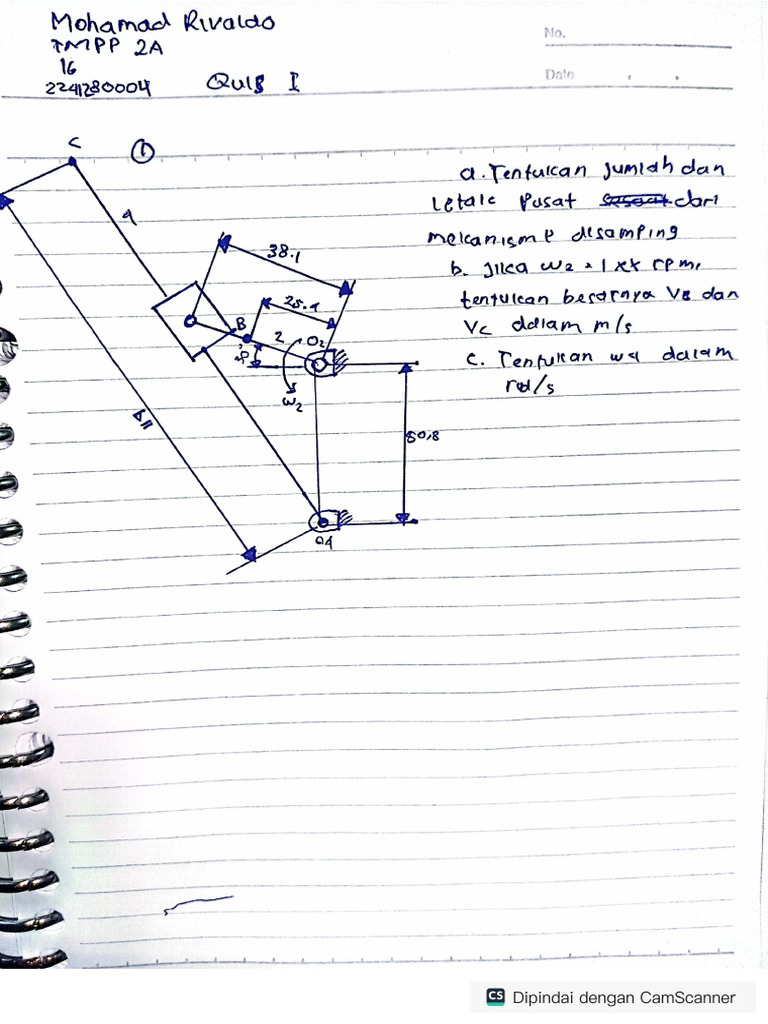 Mohamad Rivaldo
TMPP 2A
16
2241280004
Quis I
No.
Date
C
①
a. Tentukan jumlah dan
letak Pusat dari
mekanisme disamping
b. Jika ω2 = 1xx rpm,
tentukan besarnya VB dan
VC dalam m/s
c. Tentukan ω4 dalam
rad/s
4
38.1
25.4
B
2
O2
ω2
50,8
O4